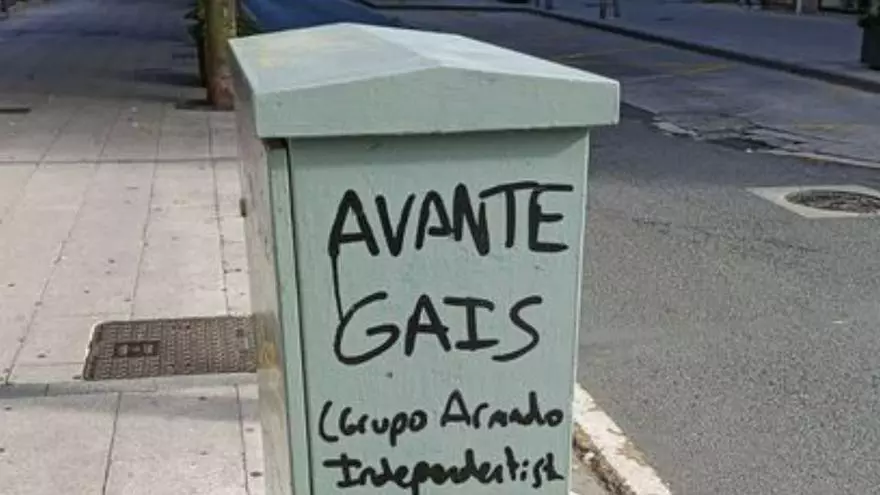 AVANTE
GAIS
(Grupo Armado
Independentist